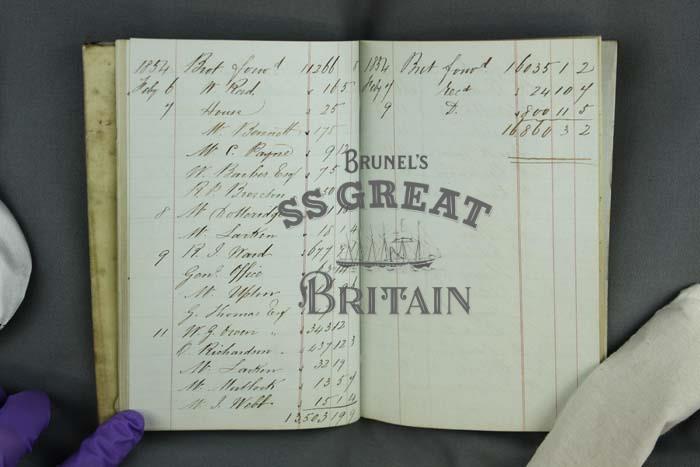 1854 Brot forwd 11266
Feby 6 W Rood " 16 5
7 House " 25
Mr Bennett " 175
Mr C. Payne " 9 12
W. Barber Esq " 75
R. P.
8 Mr
Mr Larken 15 1 4
9 R. I. Ward 677
Genl Office
Mr Upton
G. Thomas Esq
11 W. G. Owen " " 343 12
Richardson " 437 12 3
Mr Larken " 33 19
Mr Matlock " 13 5 7
W. J. Webb " 15 1 4
13,503 19 9
1854 Brot forwd 16035 1 2
Feby 7 Recd " 24 10 7
9 Do. " 800 11 5
16860 3 2
BRUNEL'S
SS GREAT
BRITAIN